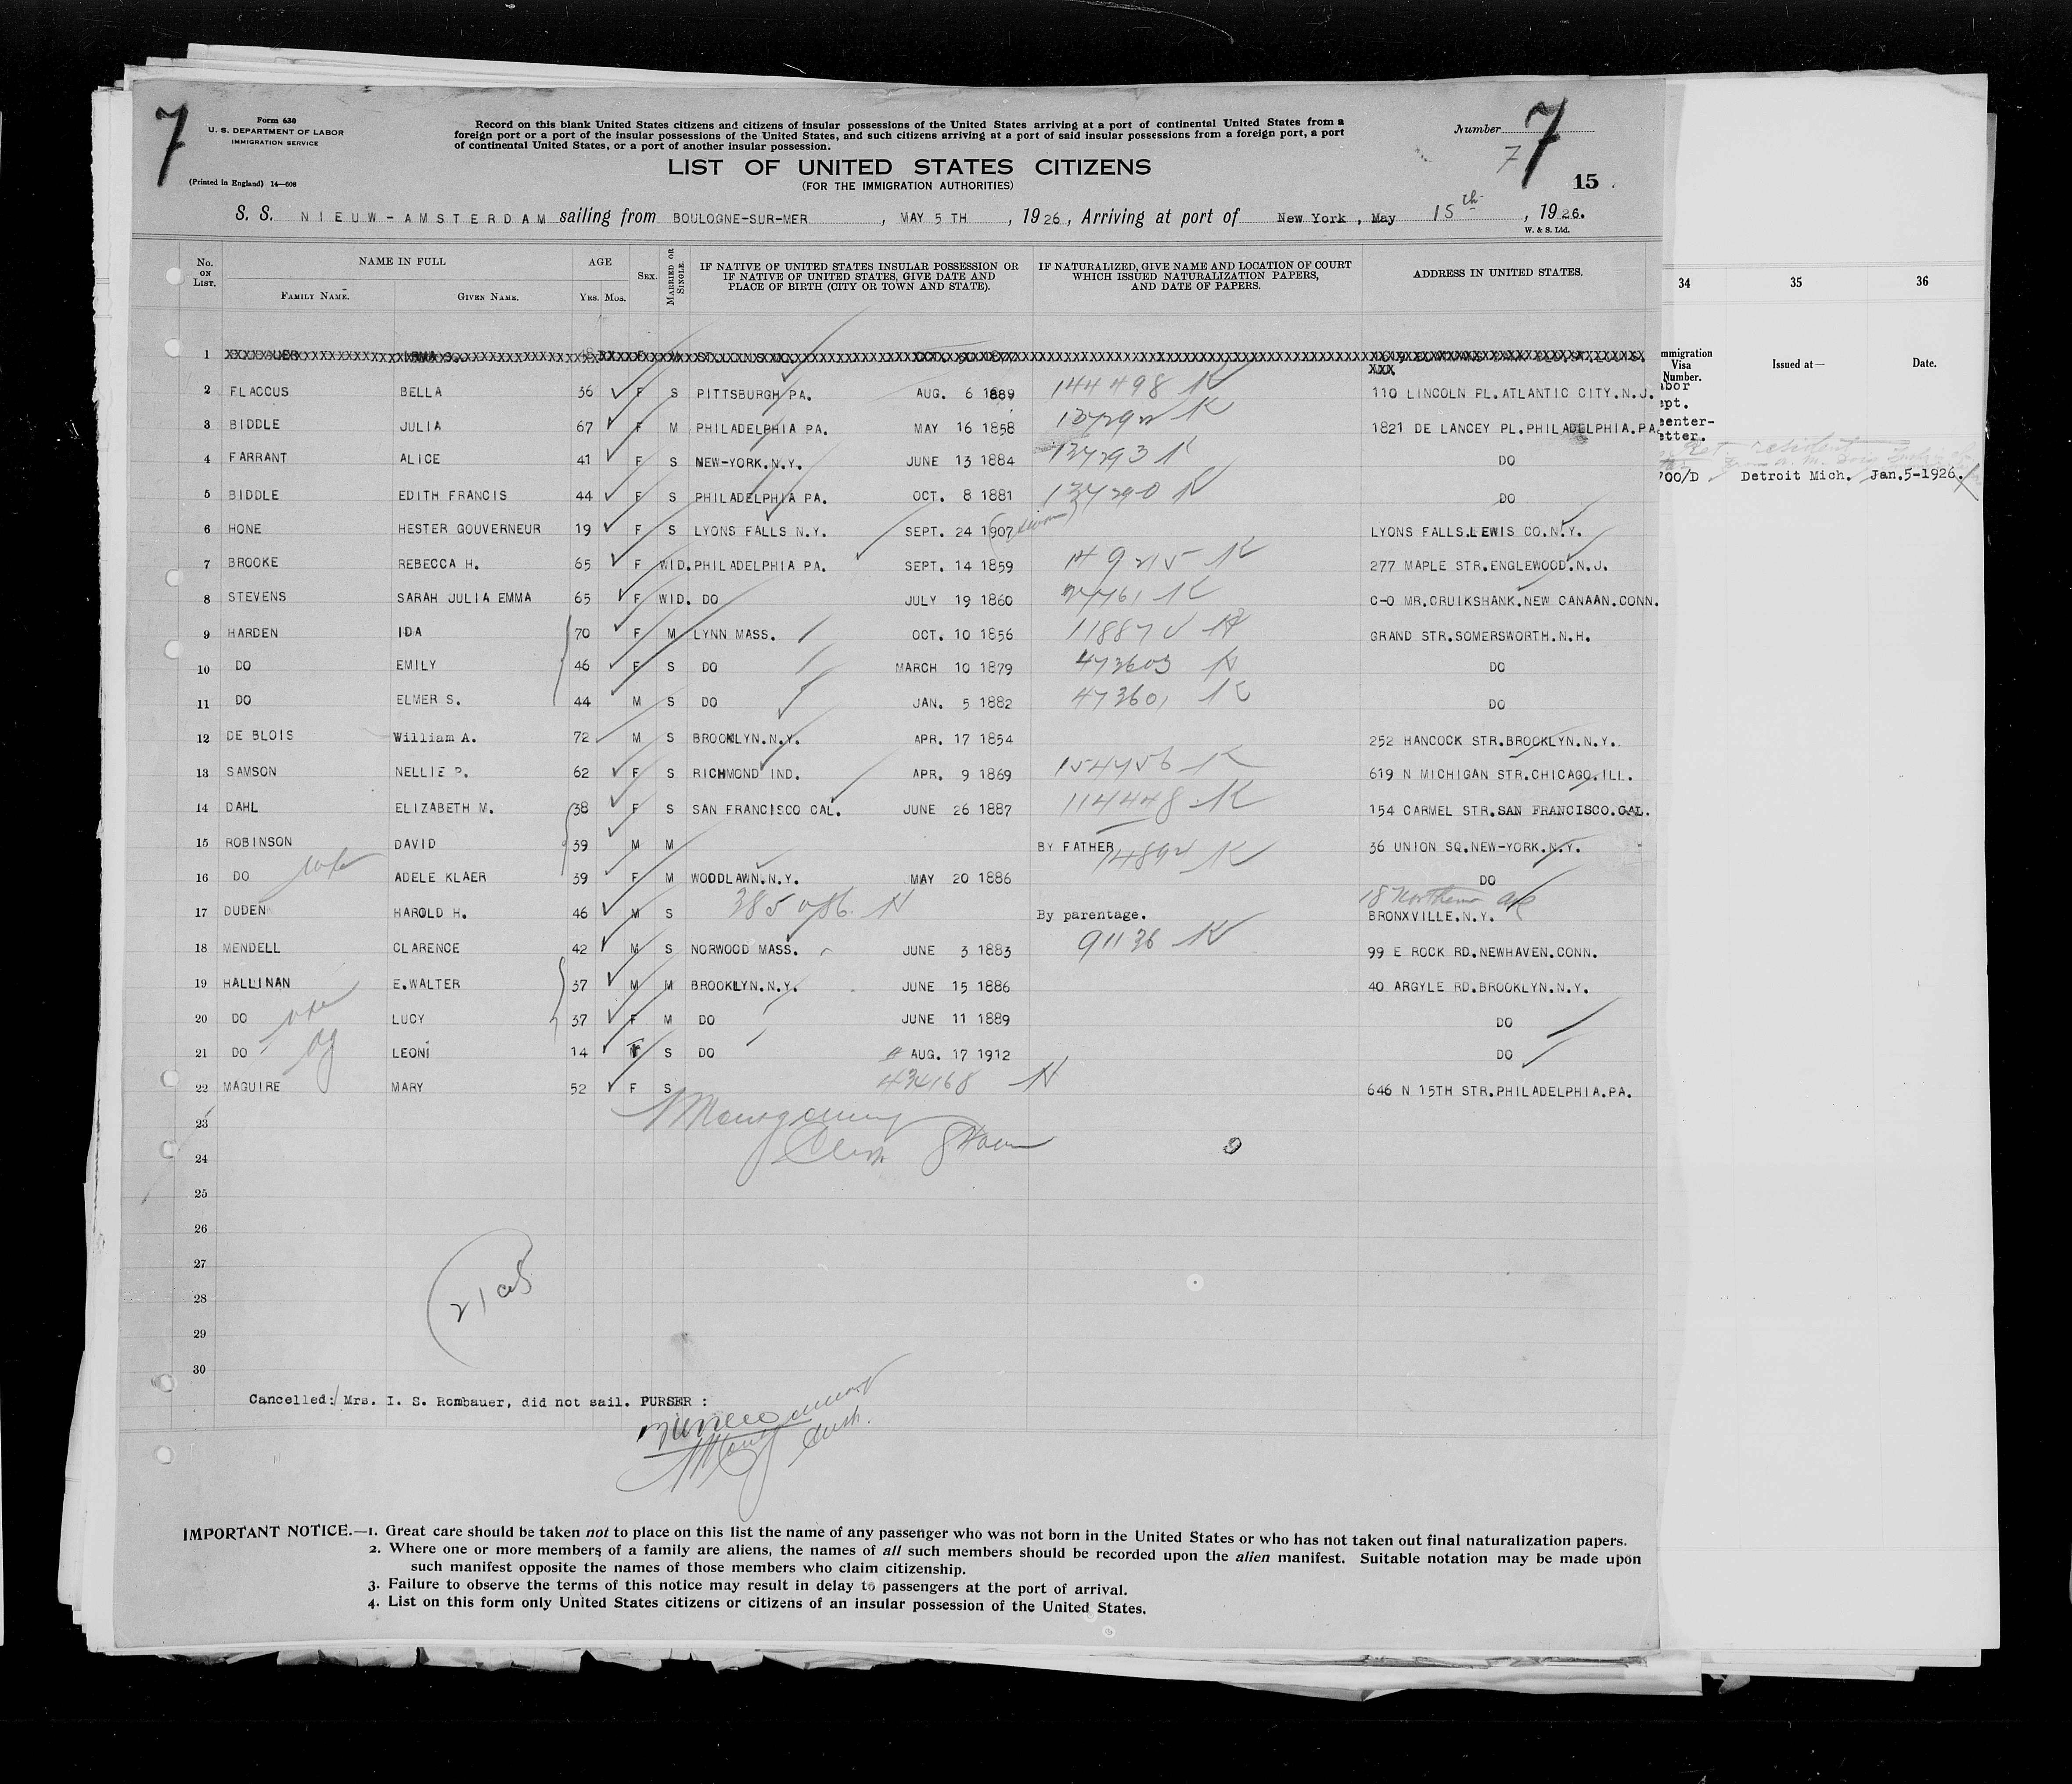 7
Form 630
U. S. DEPARTMENT OF LABOR
IMMIGRATION SERVICE
(Printed in England) 14—608
Record on this blank United States citizens and citizens of insular possessions of the United States arriving at a port of continental United States from a
foreign port or a port of the insular possessions of the United States, and such citizens arriving at a port of said insular possessions from a foreign port, a port
of continental United States, or a port of another insular possession.
LIST OF UNITED STATES CITIZENS
(FOR THE IMMIGRATION AUTHORITIES)
Number 7
7
15
S. S. NIEUW-AMSTERDAM sailing from BOULOGNE-SUR-MER, MAY 5 TH, 1926, Arriving at port of New York, May 15th, 1926.
W. & S. Ltd.
No. ON LIST. NAME IN FULL FAMILY NAME. GIVEN NAME. AGE YRS. MOS. SEX. MARRIED OR SINGLE. IF NATIVE OF UNITED STATES INSULAR POSSESSION OR IF NATIVE OF UNITED STATES, GIVE DATE AND PLACE OF BIRTH (CITY OR TOWN AND STATE). IF NATURALIZED, GIVE NAME AND LOCATION OF COURT WHICH ISSUED NATURALIZATION PAPERS, AND DATE OF PAPERS. ADDRESS IN UNITED STATES.
34 35 36
mmigration Visa Number. Issued at— Date.
1
XXX
2 FLACCUS BELLA 36 F S PITTSBURGH PA. AUG. 6 1889 144498 K 110 LINCOLN PL.ATLANTIC CITY.N.J.
3 BIDDLE JULIA 67 F M PHILADELPHIA PA. MAY 16 1858 K 1821 DE LANCEY PL.PHILADELPHIA.PA.
4 FARRANT ALICE 41 F S NEW-YORK.N.Y. JUNE 13 1884 137293 K DO
5 BIDDLE EDITH FRANCIS 44 F S PHILADELPHIA PA. OCT. 8 1881 137290 K DO
6 HONE HESTER GOUVERNEUR 19 F S LYONS FALLS N.Y. SEPT. 24 1907 LYONS FALLS.LEWIS CO.N.Y.
7 BROOKE REBECCA H. 65 F WID. PHILADELPHIA PA. SEPT. 14 1859 149215 K 277 MAPLE STR.ENGLEWOOD.N.J.
8 STEVENS SARAH JULIA EMMA 65 F WID. DO JULY 19 1860 K C-O MR.CRUIKSHANK.NEW CANAAN.CONN.
9 HARDEN IDA 70 F M LYNN MASS. OCT. 10 1856 GRAND STR.SOMERSWORTH.N.H.
10 DO EMILY 46 F S DO MARCH 10 1879 473603 N DO
11 DO ELMER S. 44 M S DO JAN. 5 1882 473601 K DO
12 DE BLOIS William A. 72 M S BROOKLYN.N.Y. APR. 17 1854 252 HANCOCK STR.BROOKLYN.N.Y.
13 SAMSON NELLIE P. 62 F S RICHMOND IND. APR. 9 1869 154756 K 619 N MICHIGAN STR.CHICAGO.ILL.
14 DAHL ELIZABETH M. 38 F S SAN FRANCISCO CAL. JUNE 26 1887 114448 K 154 CARMEL STR.SAN FRANCISCO.CAL.
15 ROBINSON DAVID 39 M M BY FATHER K 36 UNION SQ.NEW-YORK.N.Y.
16 DO wife ADELE KLAER 39 F M WOODLAWN.N.Y. MAY 20 1886 DO
17 DUDEN HAROLD H. 46 M S 385086 N By parentage. BRONXVILLE.N.Y.
18 MENDELL CLARENCE 42 M S NORWOOD MASS. JUNE 3 1883 91136 K 99 E ROCK RD.NEWHAVEN.CONN.
19 HALLINAN E.WALTER 37 M M BROOKLYN.N.Y. JUNE 15 1886 40 ARGYLE RD.BROOKLYN.N.Y.
20 DO wife LUCY 37 F M DO JUNE 11 1889 DO
21 DO LEONI 14 F S DO AUG. 17 1912 DO
22 MAGUIRE MARY 52 F S 434168 N 646 N 15TH STR.PHILADELPHIA.PA.
23
24
25
26
27
28
29
30
abor
ept.
enter-
etter.
700/D Detroit Mich. Jan.5-1926.
Cancelled: Mrs. I. S. Rombauer, did not sail. PURSER :
IMPORTANT NOTICE.—1. Great care should be taken not to place on this list the name of any passenger who was not born in the United States or who has not taken out final naturalization papers.
2. Where one or more members of a family are aliens, the names of all such members should be recorded upon the alien manifest. Suitable notation may be made upon
such manifest opposite the names of those members who claim citizenship.
3. Failure to observe the terms of this notice may result in delay to passengers at the port of arrival.
4. List on this form only United States citizens or citizens of an insular possession of the United States.